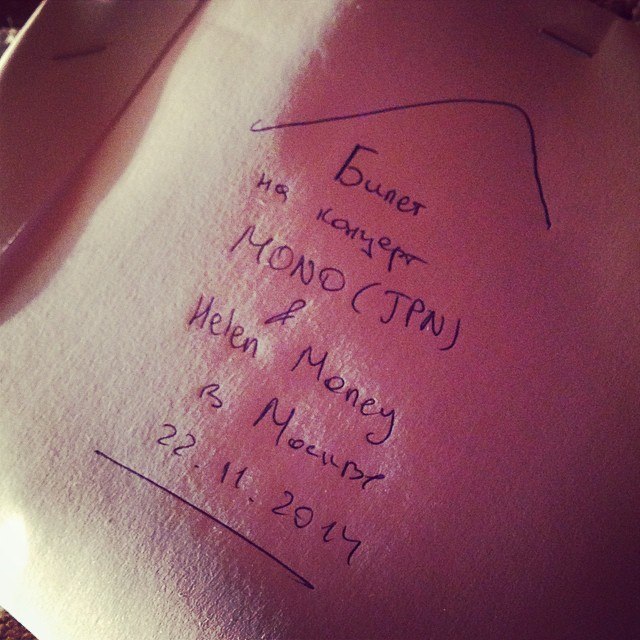 Билет
на концерт
MONO (JPN)
&
Helen Money
в Москве
22.11.2014